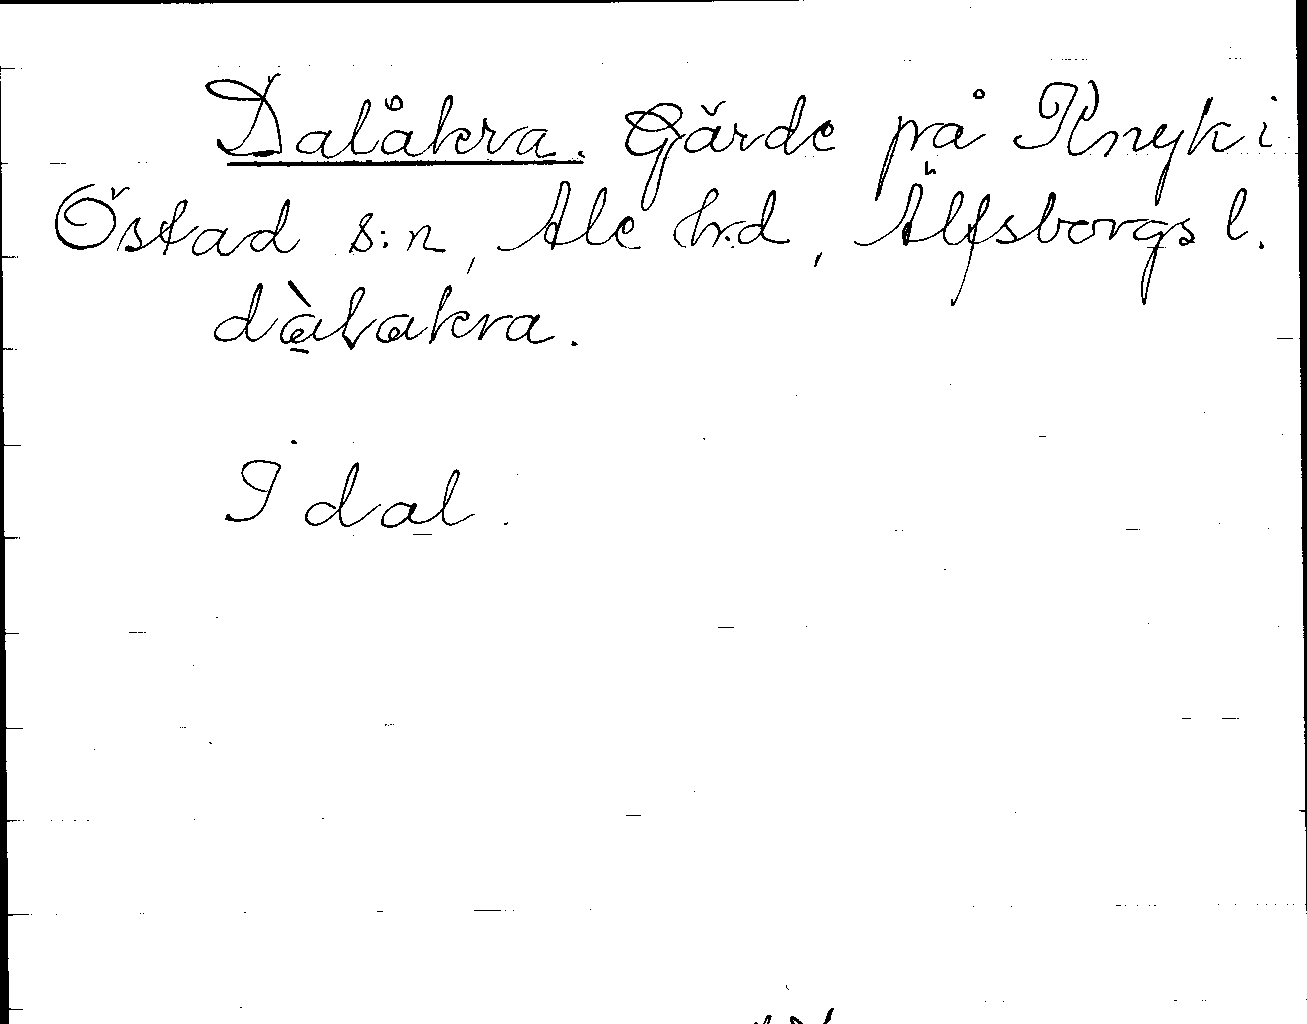 Dalåkra. Gärde på Knyk i
Östad s:n, Ale h:d, Älfsborgs l.
dàlakra.
I dal.